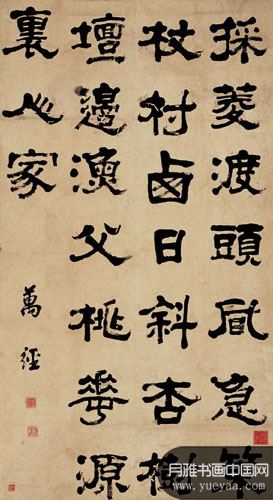 採菱渡頭風急策
杖村西日斜杏樹
壇邊漁父桃華源
裏人家
萬經
月雅书画中国网
www.yueyaa.com